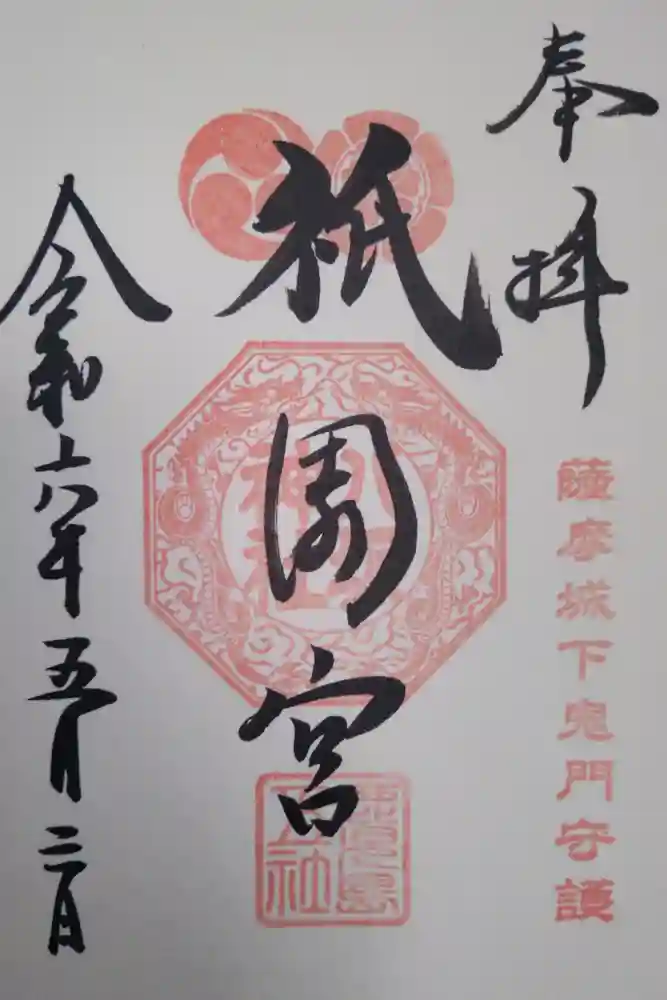 奉拝
薩摩城下鬼門守護
祇園宮
八坂神社
令和六年五月二日